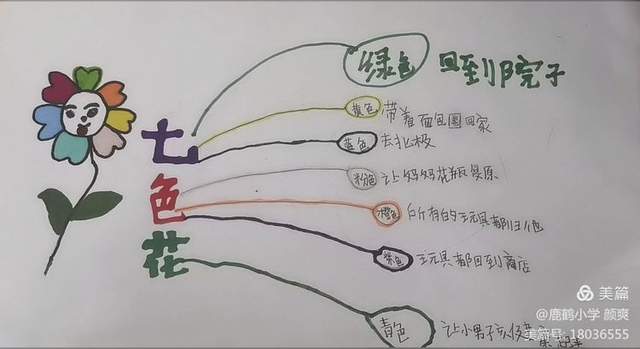 七色花
绿色 回到院子
黄色 带着面包圈回家
蓝色 去北极
粉色 让妈妈花瓶复原
橙色 所有的玩具都归他
紫色 玩具都回到商店
青色 让小男孩
美篇
@鹿鹤小学 颜爽
美篇号: 18036555